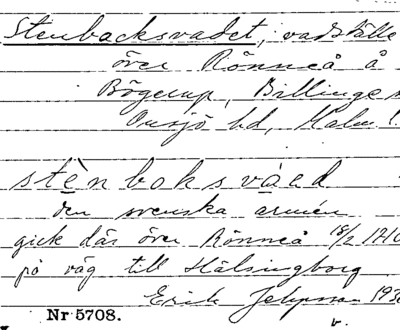 Stenbocksvadet, vadställe
över Rönneå å
Bögerup, Billinge
Onsjö hd, Malm
stènboksvaed
den svenska armén
gick där över Rönneå 18/2 1710
på väg till Hälsingborg
Erik 193
Nr 5708.